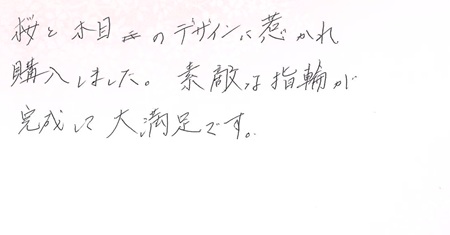 桜と木目金のデザインに惹かれ
購入しました。素敵な指輪が
完成して大満足です。